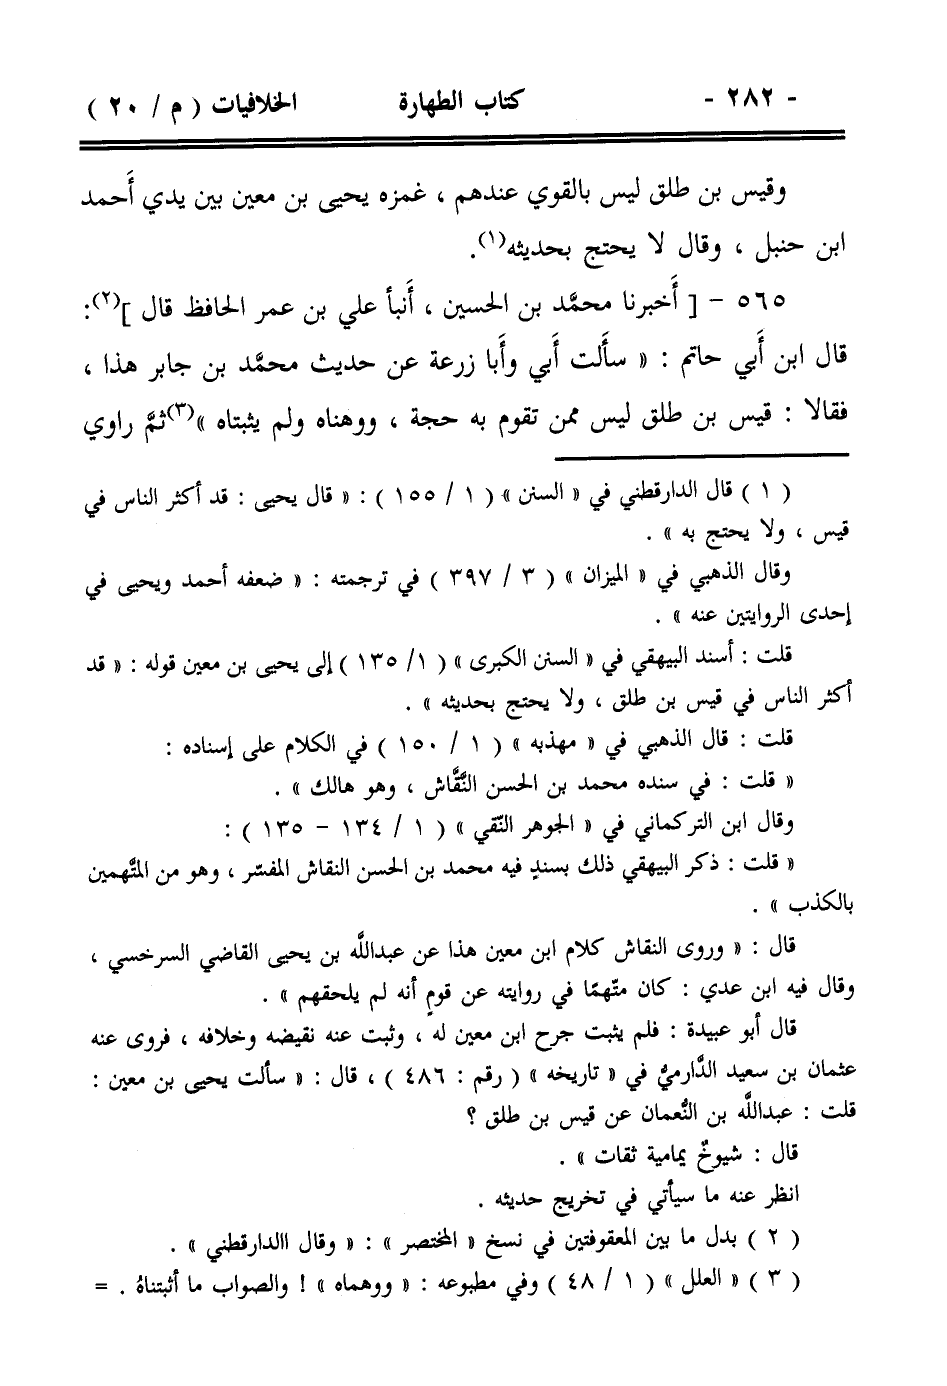 - ٢٨٢ - كتاب الطهارة الخلافيات ( م / ٢٠ )
وقيس بن طلق ليس بالقوي عندهم ، غمزه يحيى بن معين بين يدي أَحمد
ابن حنبل ، وقال لا يحتج بحديثه(١).
٥٦٥ - [ أَخبرنا محمَّد بن الحسين ، أَنبأ علي بن عمر الحافظ قال ](٢):
قال ابن أَبي حاتم : « سأَلت أَبي وأَبا زرعة عن حديث محمَّد بن جابر هذا ،
فقالا : قيس بن طلق ليس ممن تقوم به حجة ، ووهناه ولم يثبتاه »(٣) ثمَّ راوي
( ١ ) قال الدارقطني في « السنن » ( ١ / ١٥٥ ) : « قال يحيى : قد أكثر الناس في
قيس ، ولا يحتج به » .
وقال الذهبي في « الميزان » ( ٣ / ٣٩٧ ) في ترجمته : « ضعفه أحمد ويحيى في
إحدى الروايتين عنه » .
قلت : أسند البيهقي في « السنن الكبرى » ( ١/ ١٣٥ ) إلى يحيى بن معين قوله : « قد
أكثر الناس في قيس بن طلق ، ولا يحتج بحديثه » .
قلت : قال الذهبي في « مهذبه » ( ١ / ١٥٠ ) في الكلام على إسناده :
« قلت : في سنده محمد بن الحسن النَّقَّاش ، وهو هالك » .
وقال ابن التركماني في « الجوهر النّقي » ( ١ / ١٣٤ - ١٣٥ ) :
« قلت : ذكر البيهقي ذلك بسندٍ فيه محمد بن الحسن النقاش المفسّر ، وهو من المتَّهمين
بالكذب » .
قال : « وروى النقاش كلام ابن معين هذا عن عبداللَّه بن يحيى القاضي السرخسي ،
وقال فيه ابن عدي : كان متّهمًا في روايته عن قومٍ أنه لم يلحقهم » .
قال أبو عبيدة : فلم يثبت جرح ابن معين له ، وثبت عنه نقيضه وخلافه ، فروى عنه
عثمان بن سعيد الدَّارميُّ في « تاريخه » ( رقم : ٤٨٦ ) ، قال : « سألت يحيى بن معين :
قلت : عبداللَّه بن النُّعمان عن قيس بن طلق ؟
قال : شيوخٌ يمامية ثقات » .
انظر عنه ما سيأتي في تخريج حديثه .
( ٢ ) بدل ما بين المعقوفتين في نسخ « المختصر » : « وقال االدارقطني » .
( ٣ ) « العلل » ( ١ / ٤٨ ) وفي مطبوعه : « ووهماه » ! والصواب ما أثبتناهُ . =